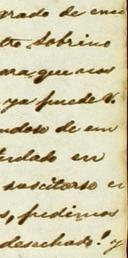 grado de en
tro Sobrino
ara que nos
ya puede V.
ndose de un
tulado en
suscitarse e
s, pedimos
desechado! y